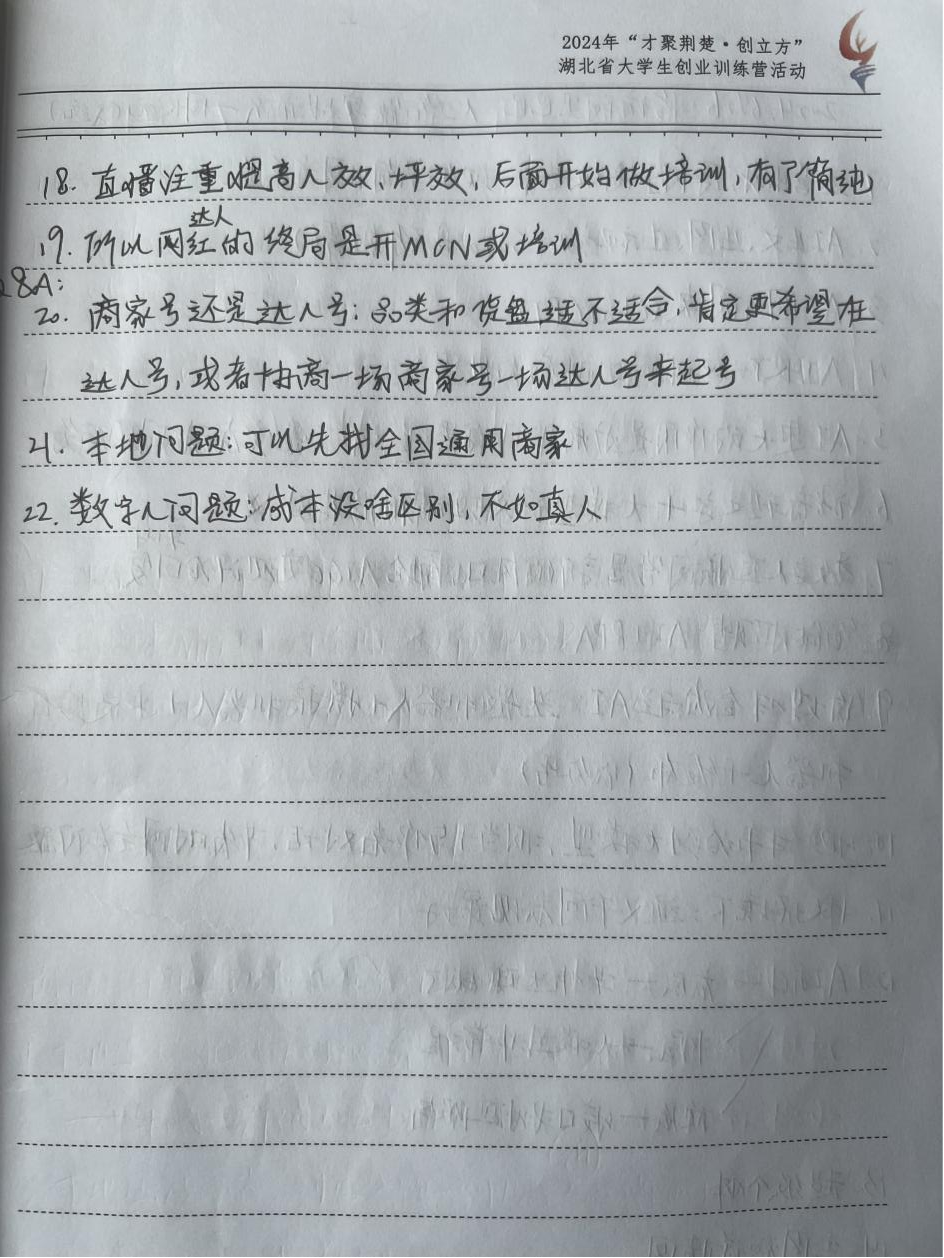 2024年“才聚荆楚·创立方”
湖北省大学生创业训练营活动
18. 直播注重提高人效、坪效，后面开始做培训，有了简纯
达人
19. 所以网红的终局是开MCN或培训
Q&A:
20. 商家号还是达人号：品类和货盘适不适合，肯定更希望在
达人号，或者协商一场商家号一场达人号来起号
21. 本地问题：可以先找全国通用商家
22. 数字人问题：成本没啥区别，不如真人